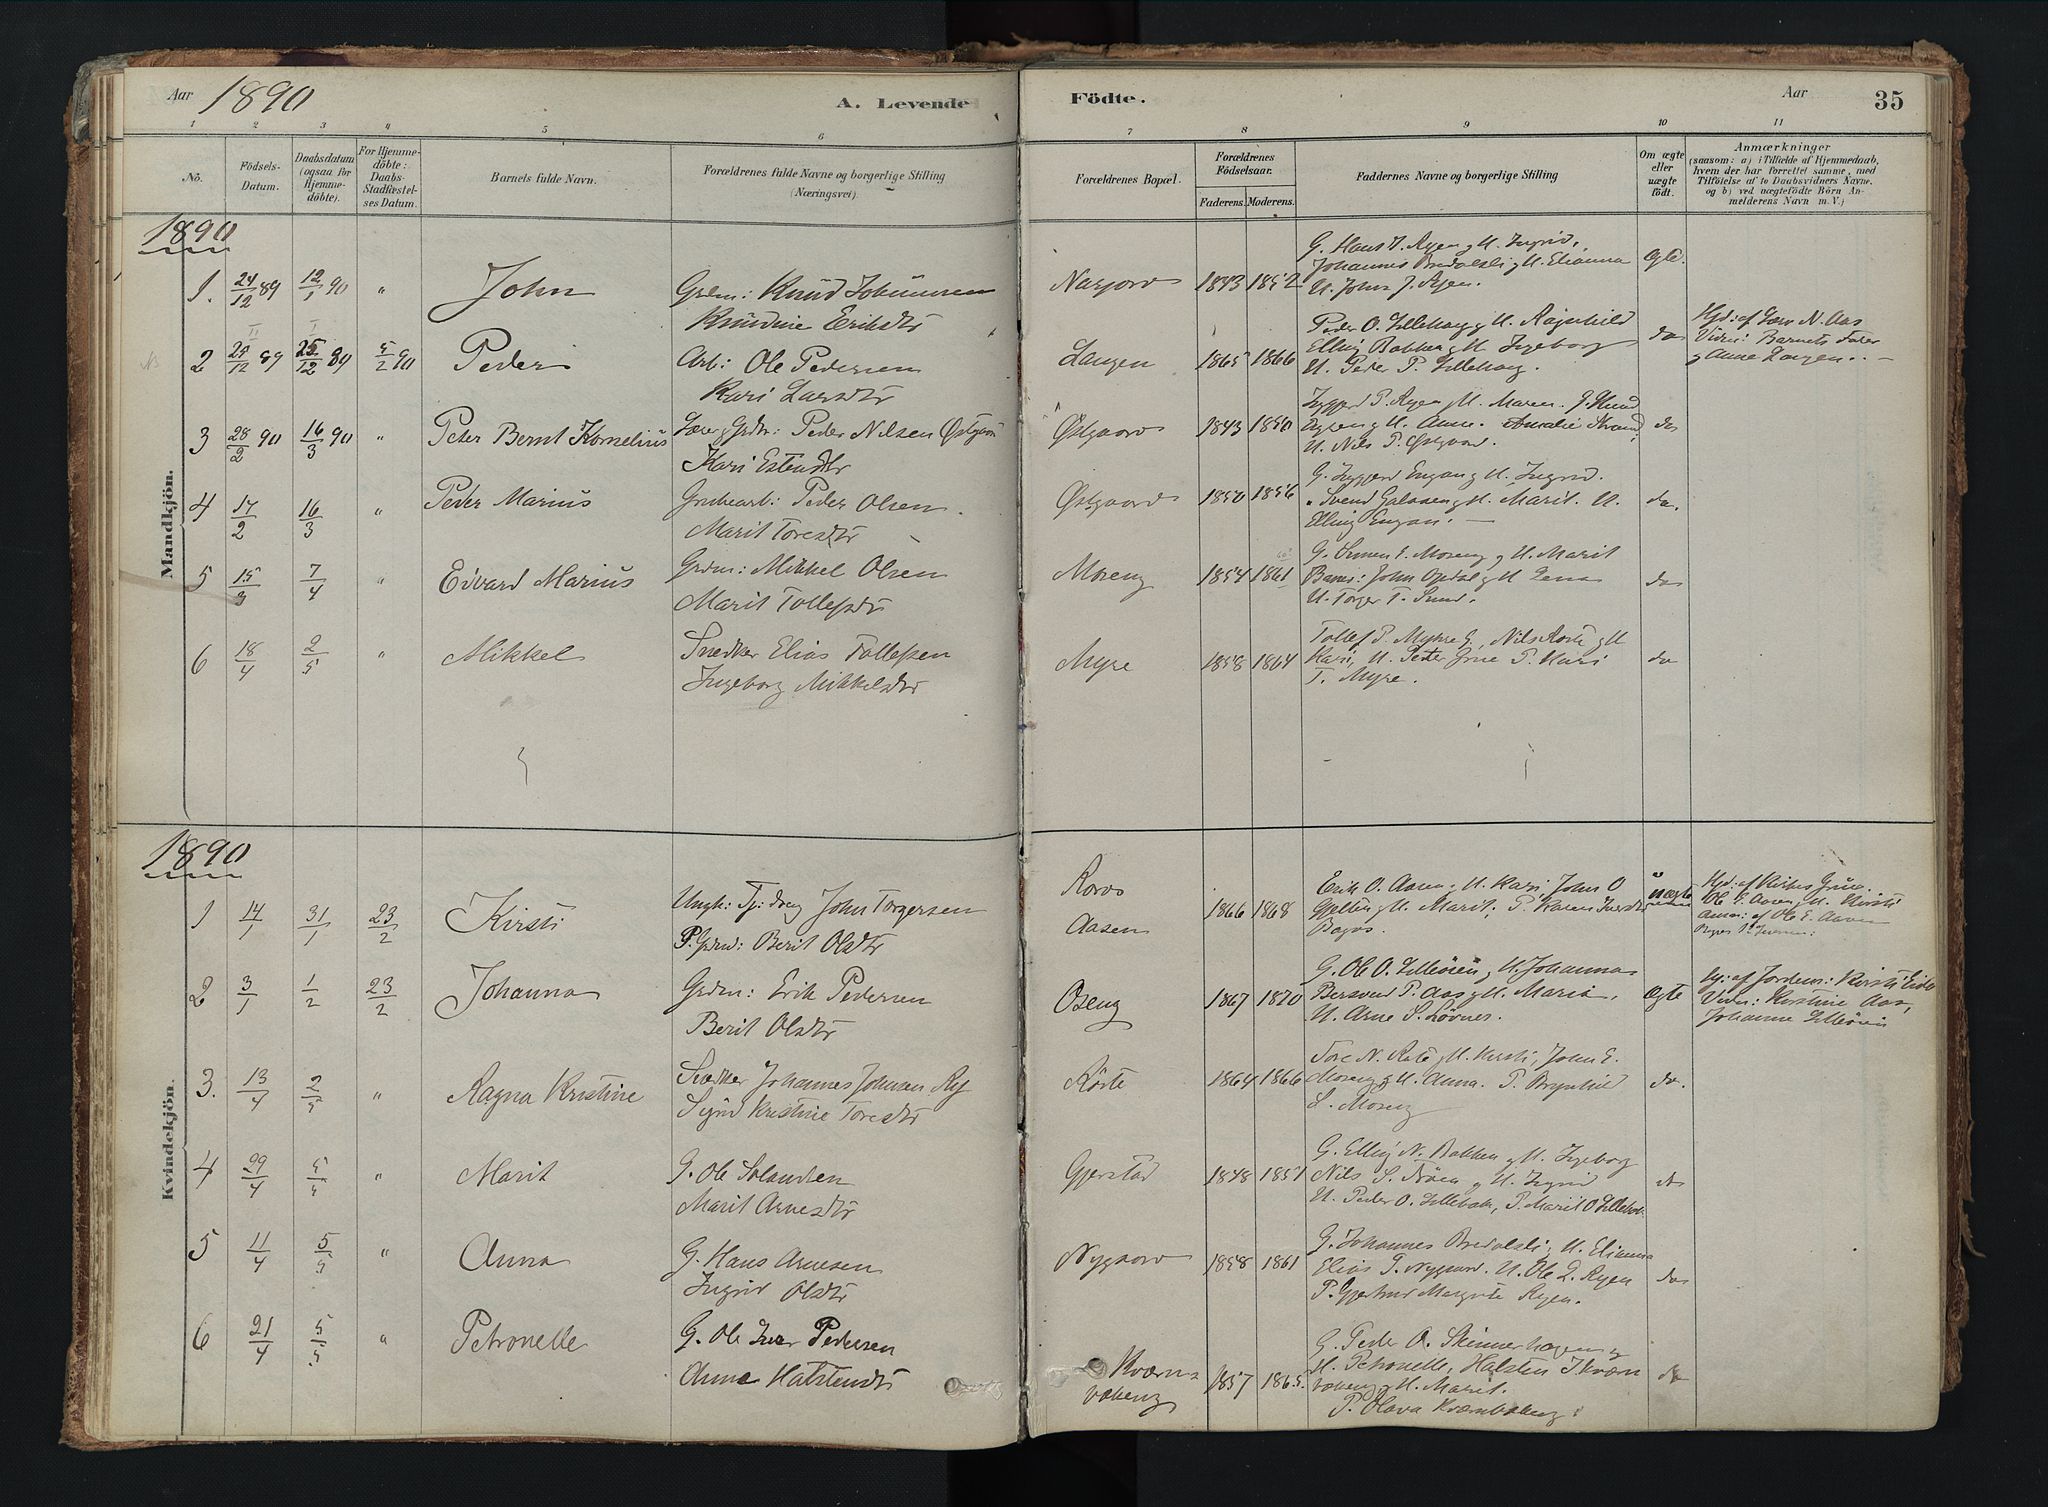 Aar 1890
A. Levende Födte.
Aar 35
1 2 3 4 5 6 7 8 9 10 11
No.
Födsels-Datum.
Daabsdatum (ogsaa for Hjemme-döbte).
For Hjemme-döbte: Daabs-Stadfæstel-ses Datum.
Barnets fulde Navn.
Forældrenes fulde Navne og borgerlige Stilling (Næringsvei).
Forældrenes Bopæl.
Forældrenes Födselsaar.
Faderens. Moderens.
Faddernes Navne og borgerlige Stilling
Om ægte eller uægte födt.
Anmærkninger
(saasom: a) i Tilfælde af Hjemmedaab,
hvem der har forrettet samme, med
Tilföielse af to Daabsvidners Navne,
og b) ved uægtefödte Börn An-
melderens Navn m. V.)
1890
Mandkjön.
1. 24/12 89 12/1 90 " John
Grdm: Knud Johnnsen
Knudine Erikdtr
Nasgård 1843 1852
G. Hans J. Ryen, H. Ingrid,
Johannes Bredalsli, H. Elianna
U. John J. Ryen.
Ægte.
2 25/12 89 25/12 89 5/2 90 Peder
Arb: Ole Pedersen
Kari Larsdtr
Langen 1865 1866
Peder O. Lillehaug, H. Ragnhild
Elling Bakken, H. Ingeborg
U. Peder P. Lillehaug.
do
Hjd: af Lærer N. Aas
Vidn: Barnets Fader
og Anne Langen. —
3 28/2 90 16/3 90 " Peter Bernt Kornelius
Lærer, Grdm: Peder Nilsen Østgaard
Kari Estensdtr
Østgaard 1843 1850
Ingjerd P. Ryen, H. Maren.
H. Anne. Amalie Strand,
U. Nils P. Østgaard.
do
4 17/2 16/3 " Peder Marius
Grubearb: Peder Olsen
Marit Toresdtr
Østgaard 1850 1856
G. Ingjerd Engan, H. Ingrid.
" Svend Galaaen, H. Marit. U.
Elling Engan. —
do.
5 15/3 7/4 " Edvard Marius
Grdm: Mikkel Olsen
Marit Tollefsdtr
Moreng 1854 1861
G. Simen E. Moreng, H. Marit
John Opdal, H. Lena
U. Torger T. Sund.
do
6 18/4 2/5 " Mikkel
Snedker Elias Tollefsen
Ingeborg Mikkelsdtr
Myre 1858 1864
Tollef P. Myhre G., Nils Røste, H
Kari, U. Peder Grue P. Kari
T. Myre.
do
1890
Kvindekjön.
1 14/1 31/1 23/2 Kirsti
Ungk: Tj: dreng John Torgersen
P. Grdm: Berit Olsdtr
Røros
Aasen
1866 1868
Erik O. Aasen, H. Kari, John O
Gjelten, H. Marit; P. Karen
uægte
Hjd: af Kirsti Grue.
Ole E. Aasen, H. Kirsti
anm: af Ole E. Aasen
2 3/1 1/2 23/2 Johanna
Grdm: Erik Pedersen
Berit Olsdtr
Oseng 1867 1870
G. Ole O. Lilleøien, H. Johanna
Bersvend P. Aas, H. Maria.
U. Arne S. Løvnes.
Ægte
Hj: af Jordem: Kirsti Eide
Vidn: Kirstine Aas,
Johanna Lilleøien
3. 13/4 2/5 " Ragna Kristine
Snedker Johannes Johnsen Ry
Sigrid Kristine Toresdtr
Röste 1864 1866
Tore N. Røste, H. Kirsti, John E.
Moreng, H. Anna. P. Brynhild
L. Moreng
do.
4 29/4 5/5 " Marit
G. Ole Estensen
Marit Arnesdtr
Gjerstad 1848 1851
G. Elling N. Bakken, H. Ingeborg
Nils S. Trøen, H. Ingrid
U. Peder O. Lillebak, P. Marit O Lillebak
do
5 11/4 5/5 " Anna
G. Hans Arnesen
Ingrid Olsdtr
Nygaard 1858 1861
G. Johannes Bredalsli, H. Elianna
Elias T. Nygaard. U. Ole L. Ryen
P. Gjertrud Margrete Ryen.
do
6 21/4 5/5 " Petronelle
G. Ole Iver Pedersen
Anne Halstensdtr
Kværn-
bakeng
1857 1865.
G. Peder O. Skinnerhaugen,
H. Petronelle, Halsten J Kværn
bakeng, H. Marit.
P. Olava Kværnbakeng.
do